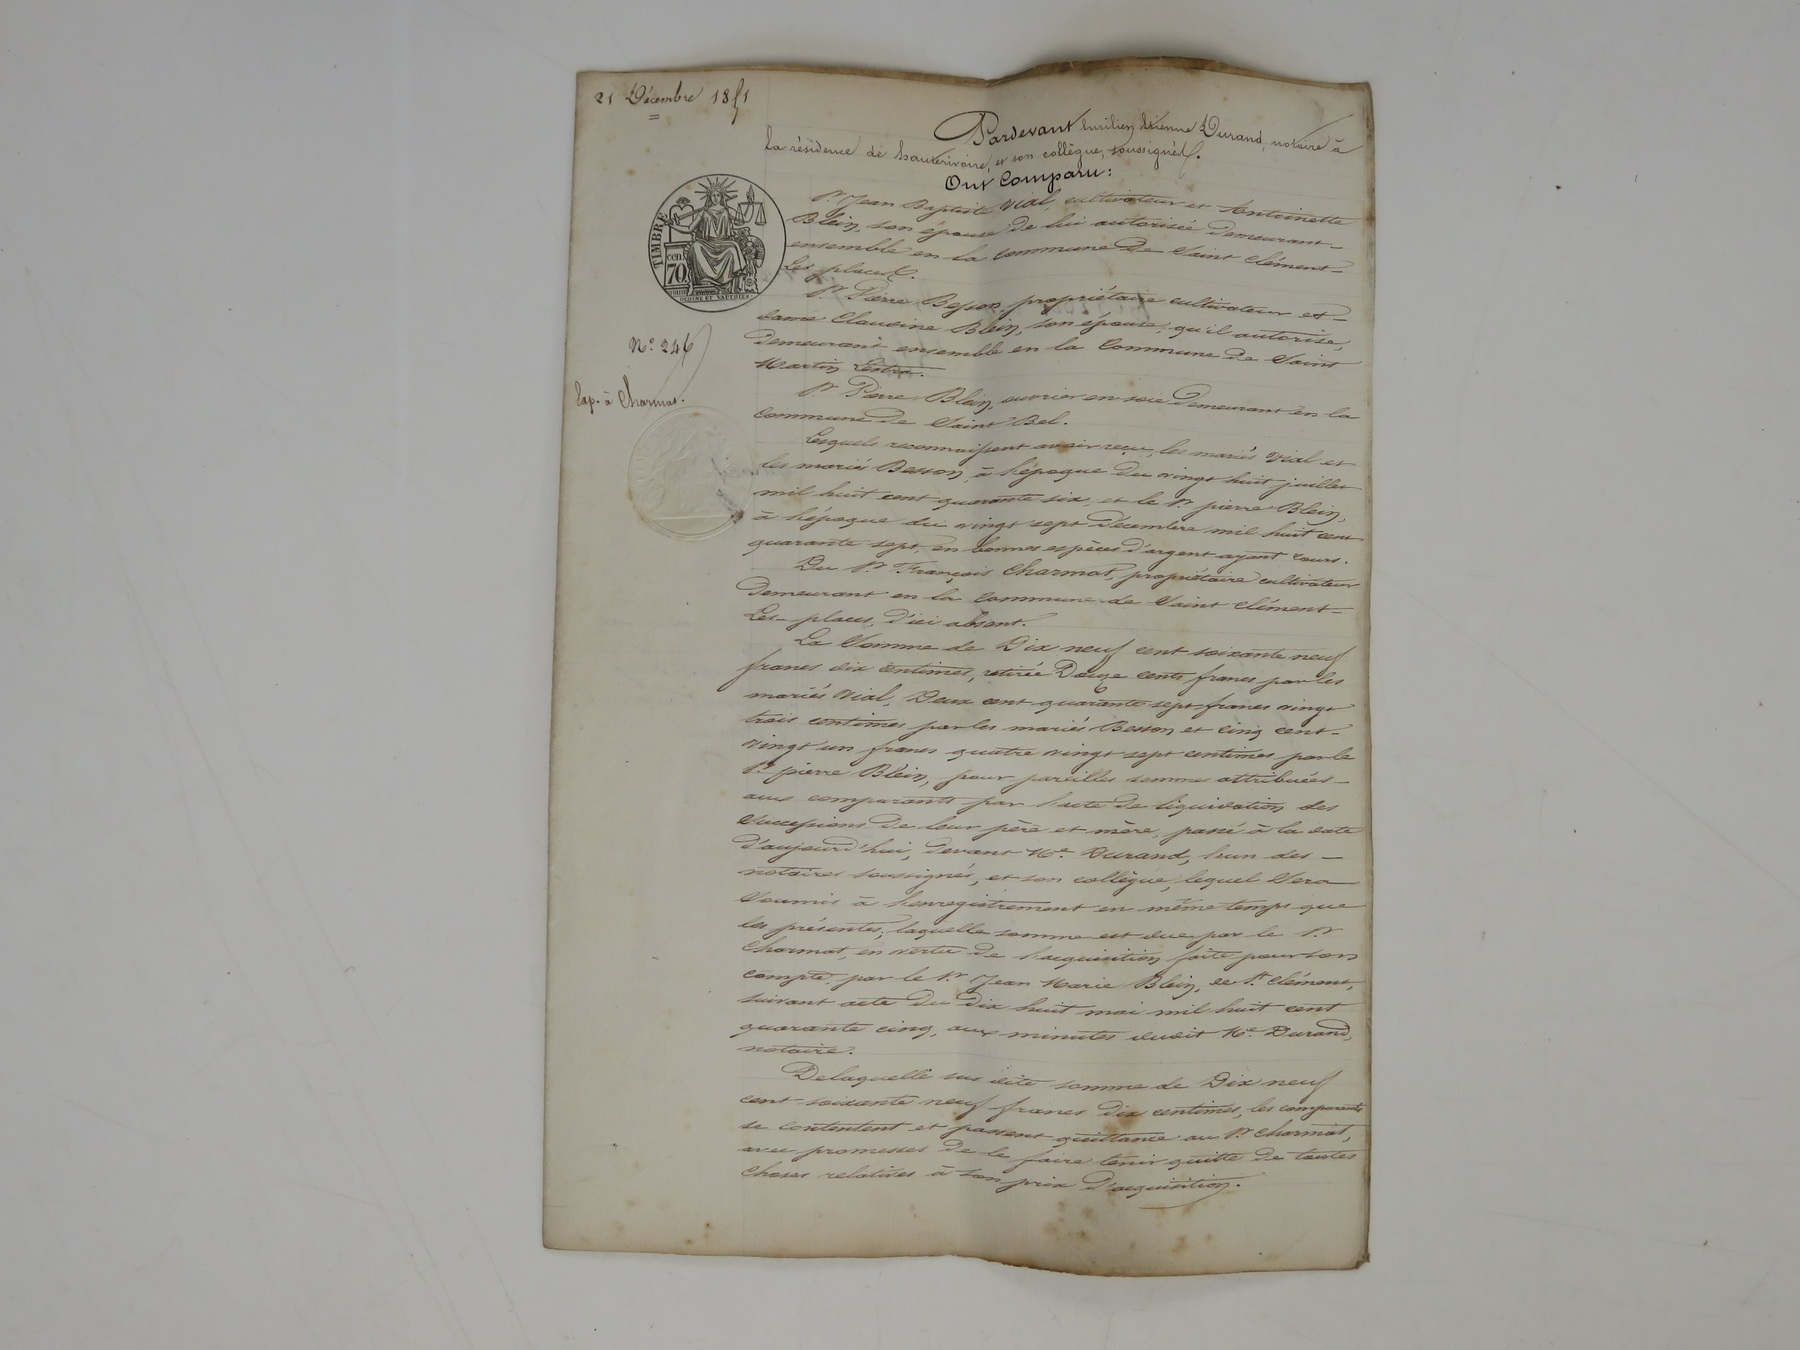 21 Décembre 1851
Pardevant Émilien Étienne Durand, notaire à
la résidence de hauterivoire, et son collègue, soussignés.
Ont Comparu:
Sr. Jean Baptiste Vial, cultivateur et Antoinette
Blein, son épouse de lui autorisée demeurant
ensemble en la commune de Saint Clément
Les places.
Sr. Pierre Besson, propriétaire cultivateur et
dame Claudine Blein, son épouse, qu'il autorise,
demeurant ensemble en la Commune de Saint
Martin Lestra.
Sr. Pierre Blein, ouvrier en soie demeurant en la
commune de Saint Bel.
Lesquels reconnaissent avoir reçu, les mariés Vial et
les mariés Besson, à l'époque du vingt huit juillet
mil huit cent quarante six, et le Sr. pierre Blein,
à l'époque du vingt sept décembre mil huit cent
quarante sept, en bonnes espèces d'argent ayant cours.
Du Sr. François Charmat, propriétaire cultivateur
demeurant en la Commune de Saint Clément
Les-places, d'ici absent.
La Somme de Dix neuf cent soixante neuf
francs dix centimes, retirée Douze cents francs par les
mariés Vial, Deux cent quarante sept francs vingt
trois centimes par les mariés Besson et cinq cent
vingt un francs quatre vingt sept centimes par le
Sr. pierre Blein, pour pareilles sommes attribuées
aux comparants par l'acte de liquidation des
Successions de leur père et mère, passé à la date
d'aujourd'hui, devant Me. Durand, l'un des
notaires soussignés, et son collègue, lequel Sera
Soumis à l'enregistrement en même temps que
les présentes; laquelle somme est due par le Sr.
Charmat, en vertu de l'acquisition faite pour son
compte, par le Sr. Jean Marie Blein, de St. Clément,
suivant acte du dix huit mai mil huit cent
quarante cinq, aux minutes dudit Me. Durand,
notaire.
Delaquelle sus dite somme de Dix neuf
cent soixante neuf francs dix centimes, les comparants
se contentent et passent quittance au Sr. Charmat,
avec promesses de le faire tenir quitte de toutes
choses relatives à son prix d'acquisition.
TIMBRE
cen
70
OUDINE ET VAUTHIER
No. 246
Exp. à Charmat.